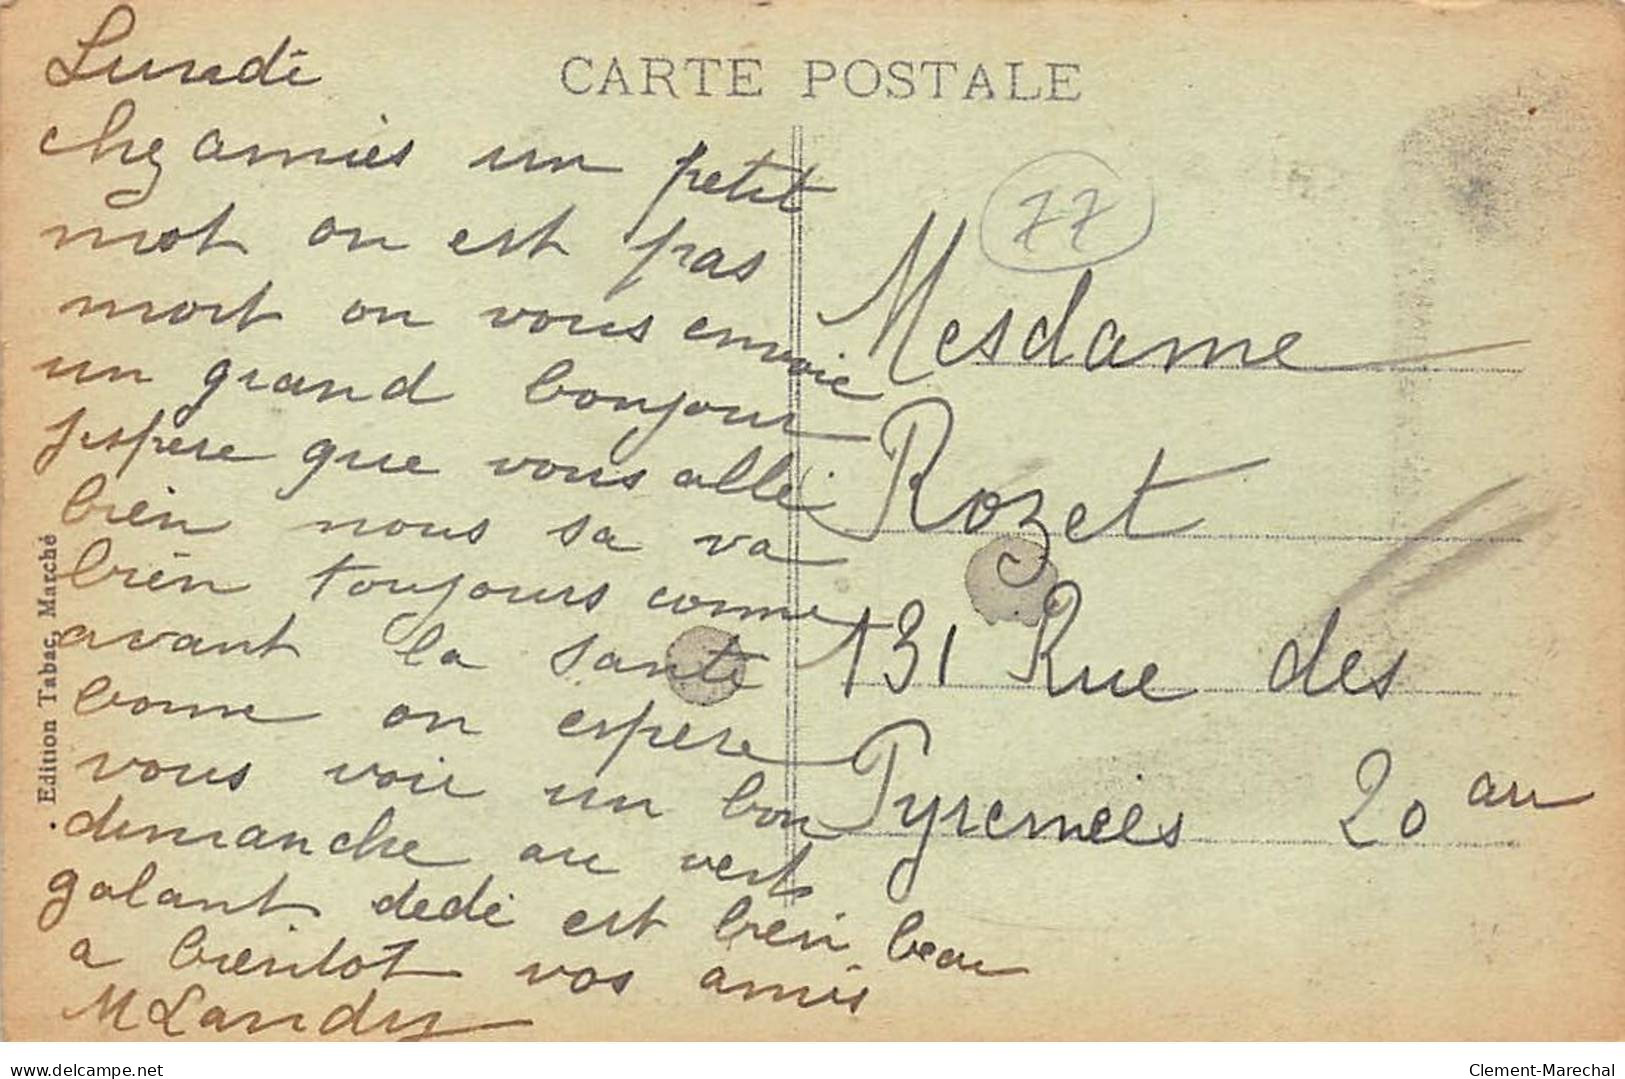 CARTE POSTALE
Lundi
chez amies un petit
mot on est pas
mort on vous envoie
un grand bonjour
jespere que vous allé
bien nous sa va
bien toujours comme
avant la santé
bonne on espere
vous voir un bon
dimanche au vert
galant dédé est bien beau
a bientot vos amis
M Landry
77
Mesdame
Rozet
131 Rue des
Pyrenées 20 arr
Edition Tabac, Marché
delcampe.net
Clement-Marechal